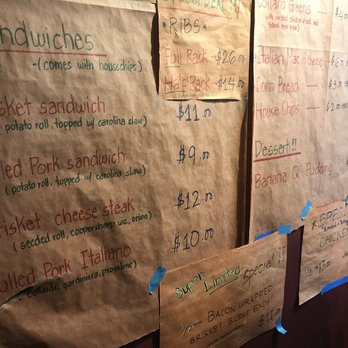 ndwiches
-(comes with housechips)
isket sandwich
potato roll, topped w/ carolina slaw)
$11.00
lled Pork sandwich
(potato roll, topped w/ carolina slaw)
$9.00
isket cheese steak
(seeded roll, coopersharp wc, onion)
$12.00
ulled Pork Italiano
collards, gardiniera, provolone)
$10.00
RIBS
Full Rack - $26.00
Half Rack - $14.00
Collard Greens
Italian Mac n cheese
Corn Bread
House Chips
Dessert!!
Banana Q Pudding
SPE
CHICKE
Super Limited Special
1/2 lb Bacon Wrapped
Brisket Burnt Ends